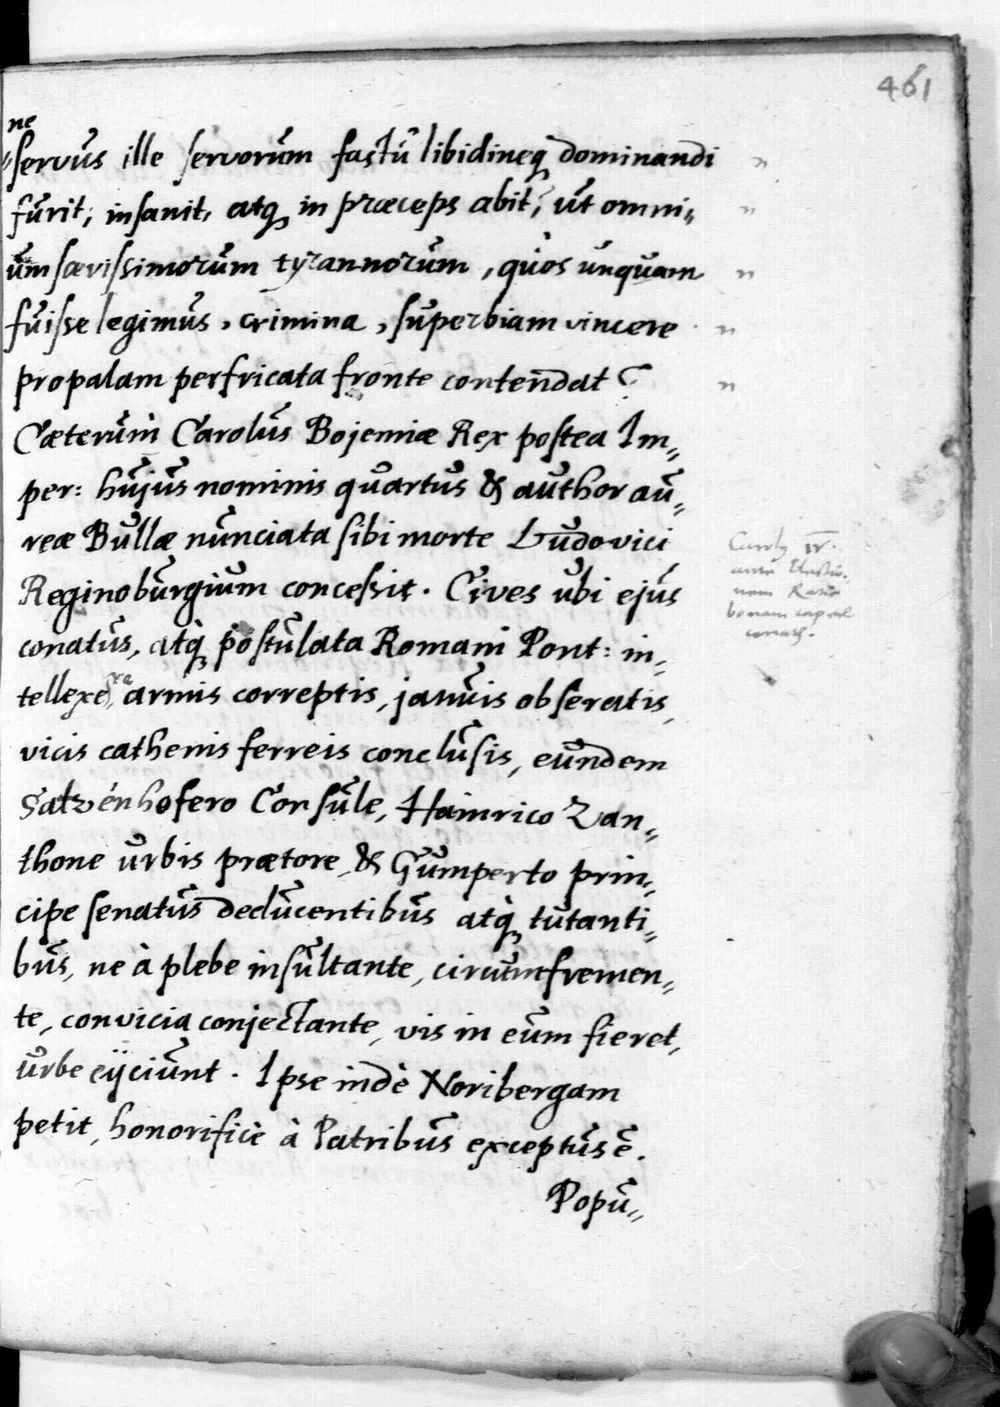 461
ne
"servus ille servorum fastu libidineq dominandi
furit, insanit, atq in præceps abit, ut omni„
um sævissimorum tyrannorum, quos unquam
fuisse legimus, crimina, superbiam vincere
propalam perfricata fronte contendat?
Cæterum Carolus Bojemiæ Rex postea Im„
per: hujus nominis quartus & author au„
reæ Bullæ nunciata sibi morte Ludovici
Reginoburgium concessit. Cives ubi ejus
conatus, atq postulata Romani Pont: in„
tellexere, armis correptis, januis obseratis,
vicis cathenis ferreis conclusis, eundem
Satzenhofero Consule, Hainrico Zan„
thone urbis prætore, & Gumperto prin„
cipe senatus deducentibus atq tutanti„
bus, ne à plebe insultante, circumfremen„
te, convicia conjectante, vis in eum fieret,
urbe eijciunt. Ipse indè Noribergam
petit, honorificè à Patribus exceptus ē.
Popu„
IV.